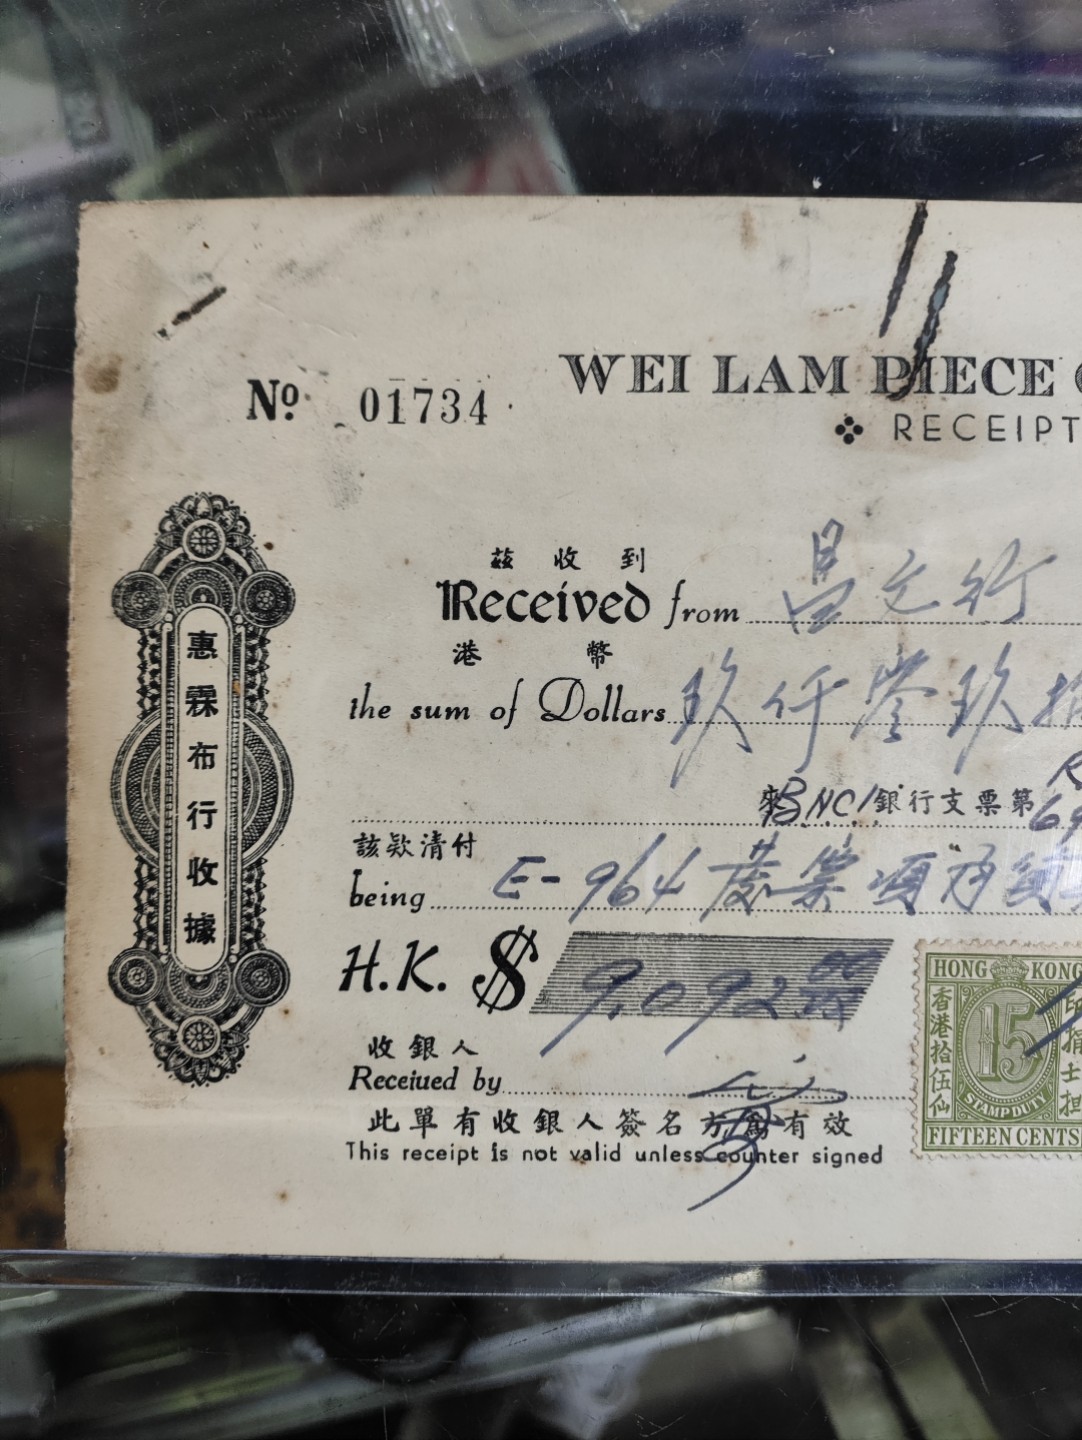 No 01734
WEI LAM PIECE
RECEIPT
茲收到
Received from 昌文行
港幣
the sum of Dollars 玖仟零玖拾
來 B.N.C.I. 銀行支票第
該欵清付
being E-964
H.K. $ 9,092 00
收銀人
Receiued by
此單有收銀人簽名方為有效
This receipt is not valid unless counter signed
惠霖布行收據
HONG KONG
香港拾伍仙
15
印捐士担
STAMP DUTY
FIFTEEN CENTS